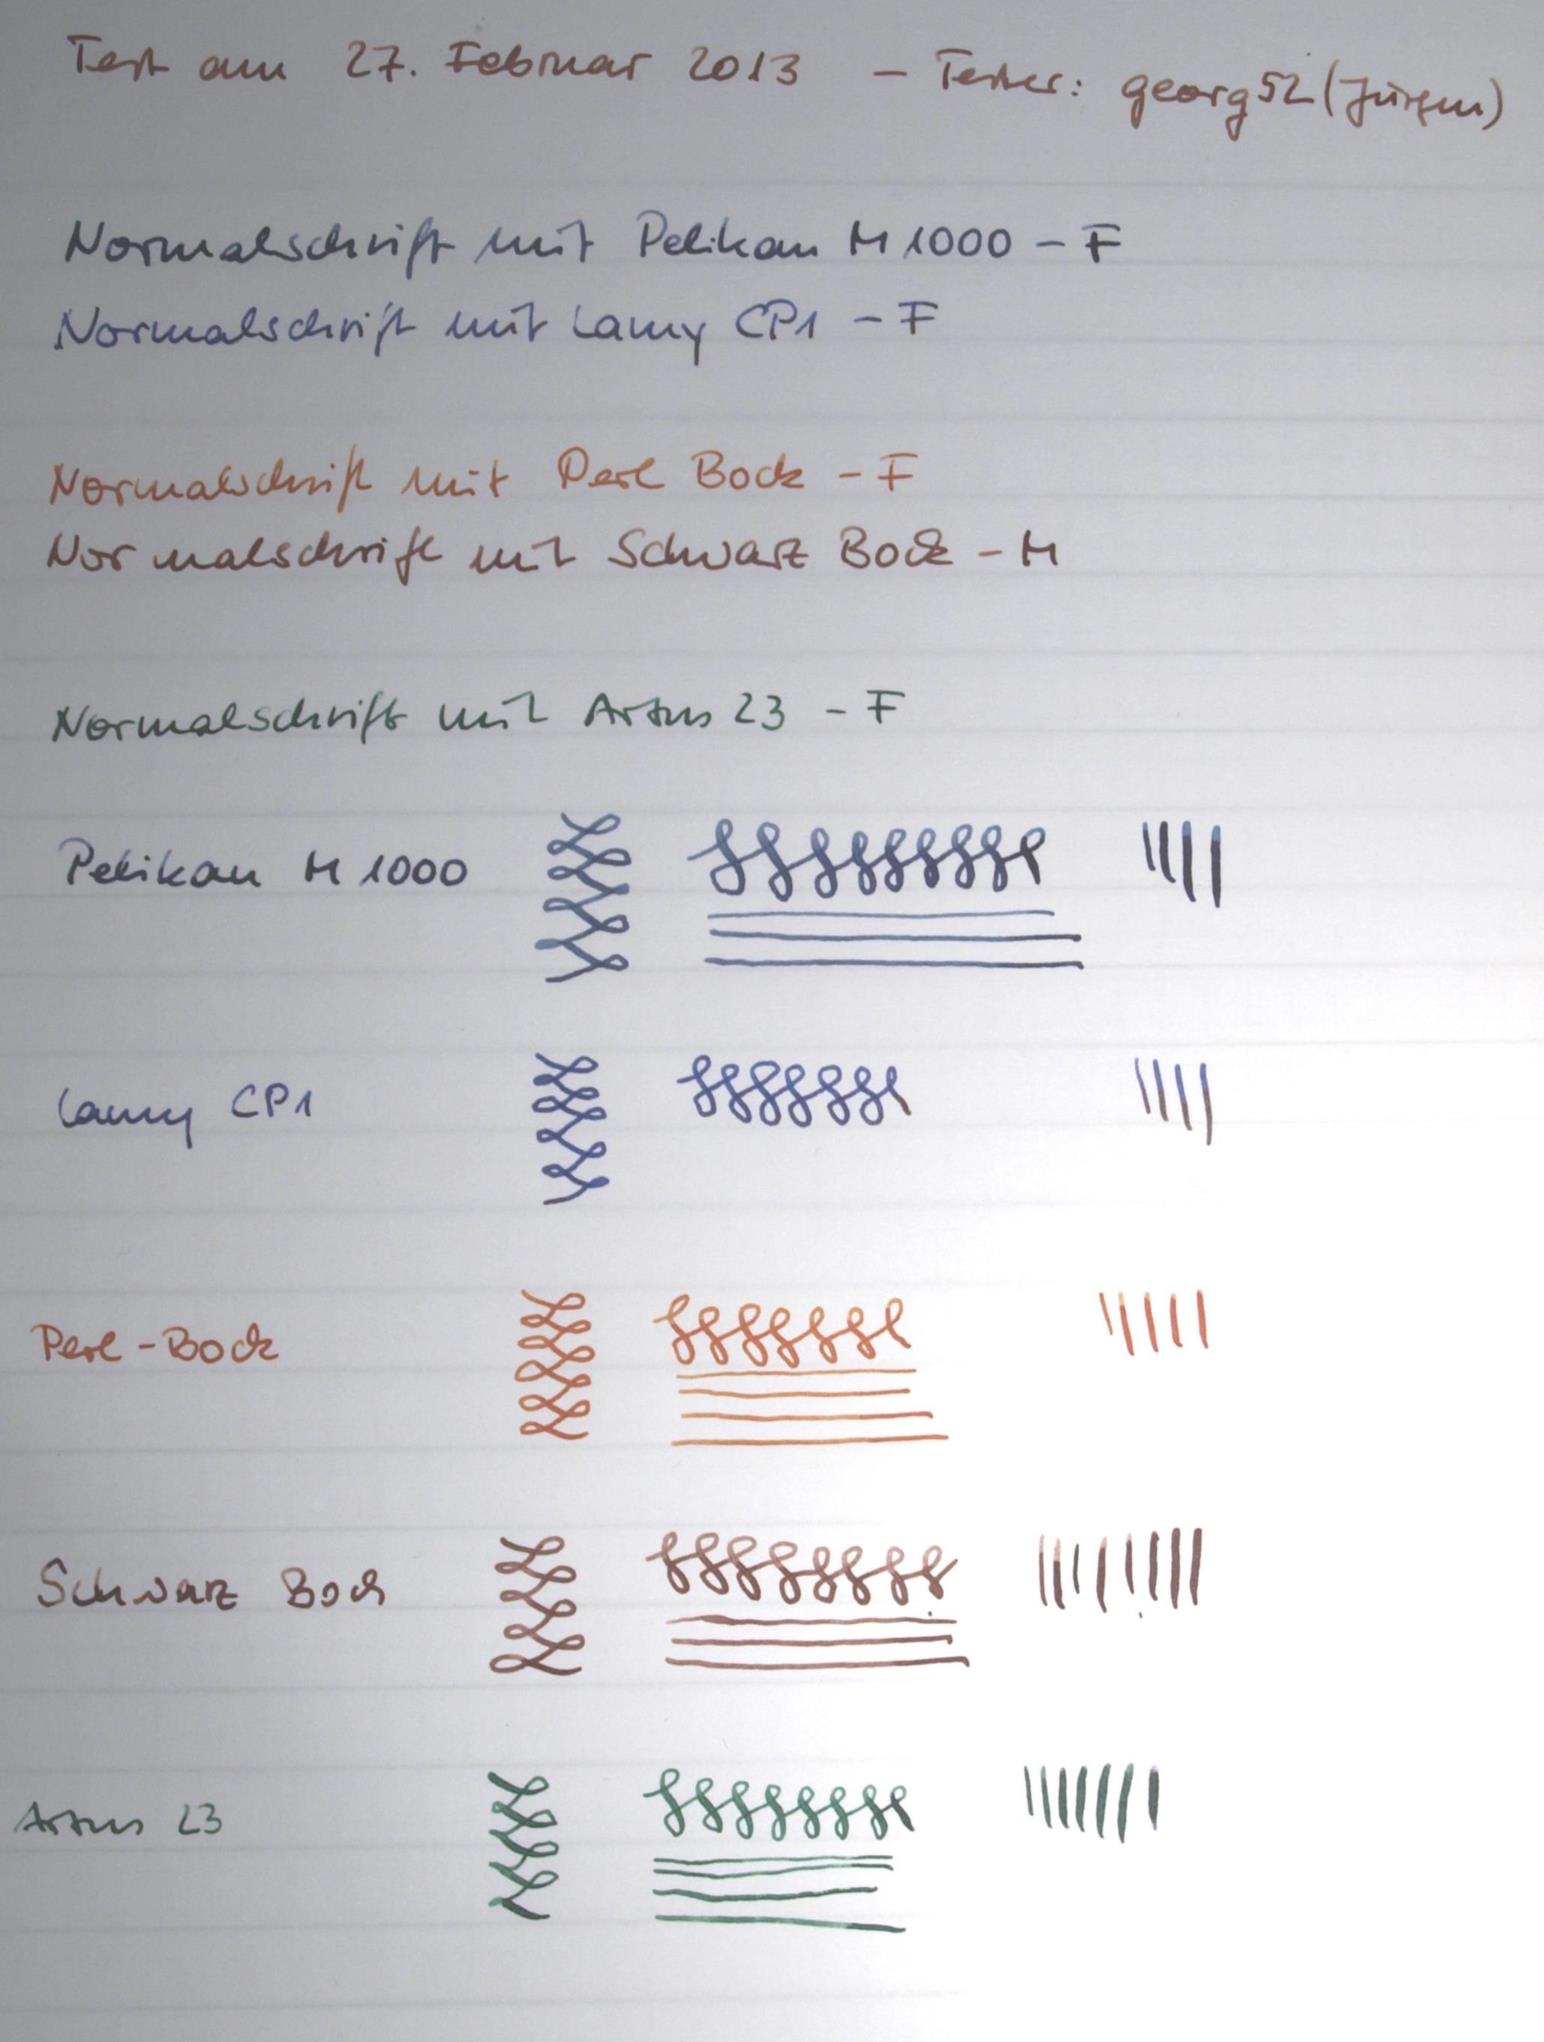 Test am 27. Februar 2013 – Tester: georg52 (Jürgen)
Normalschrift mit Pelikan M 1000 – F
Normalschrift mit Lamy CP1 – F
Normalschrift mit Perl Bock – F
Normalschrift mit Schwarz Bock – M
Normalschrift mit Artus 23 – F
Pelikan M 1000
Lamy CP1
Perl-Bock
Schwarz Bock
Artus 23